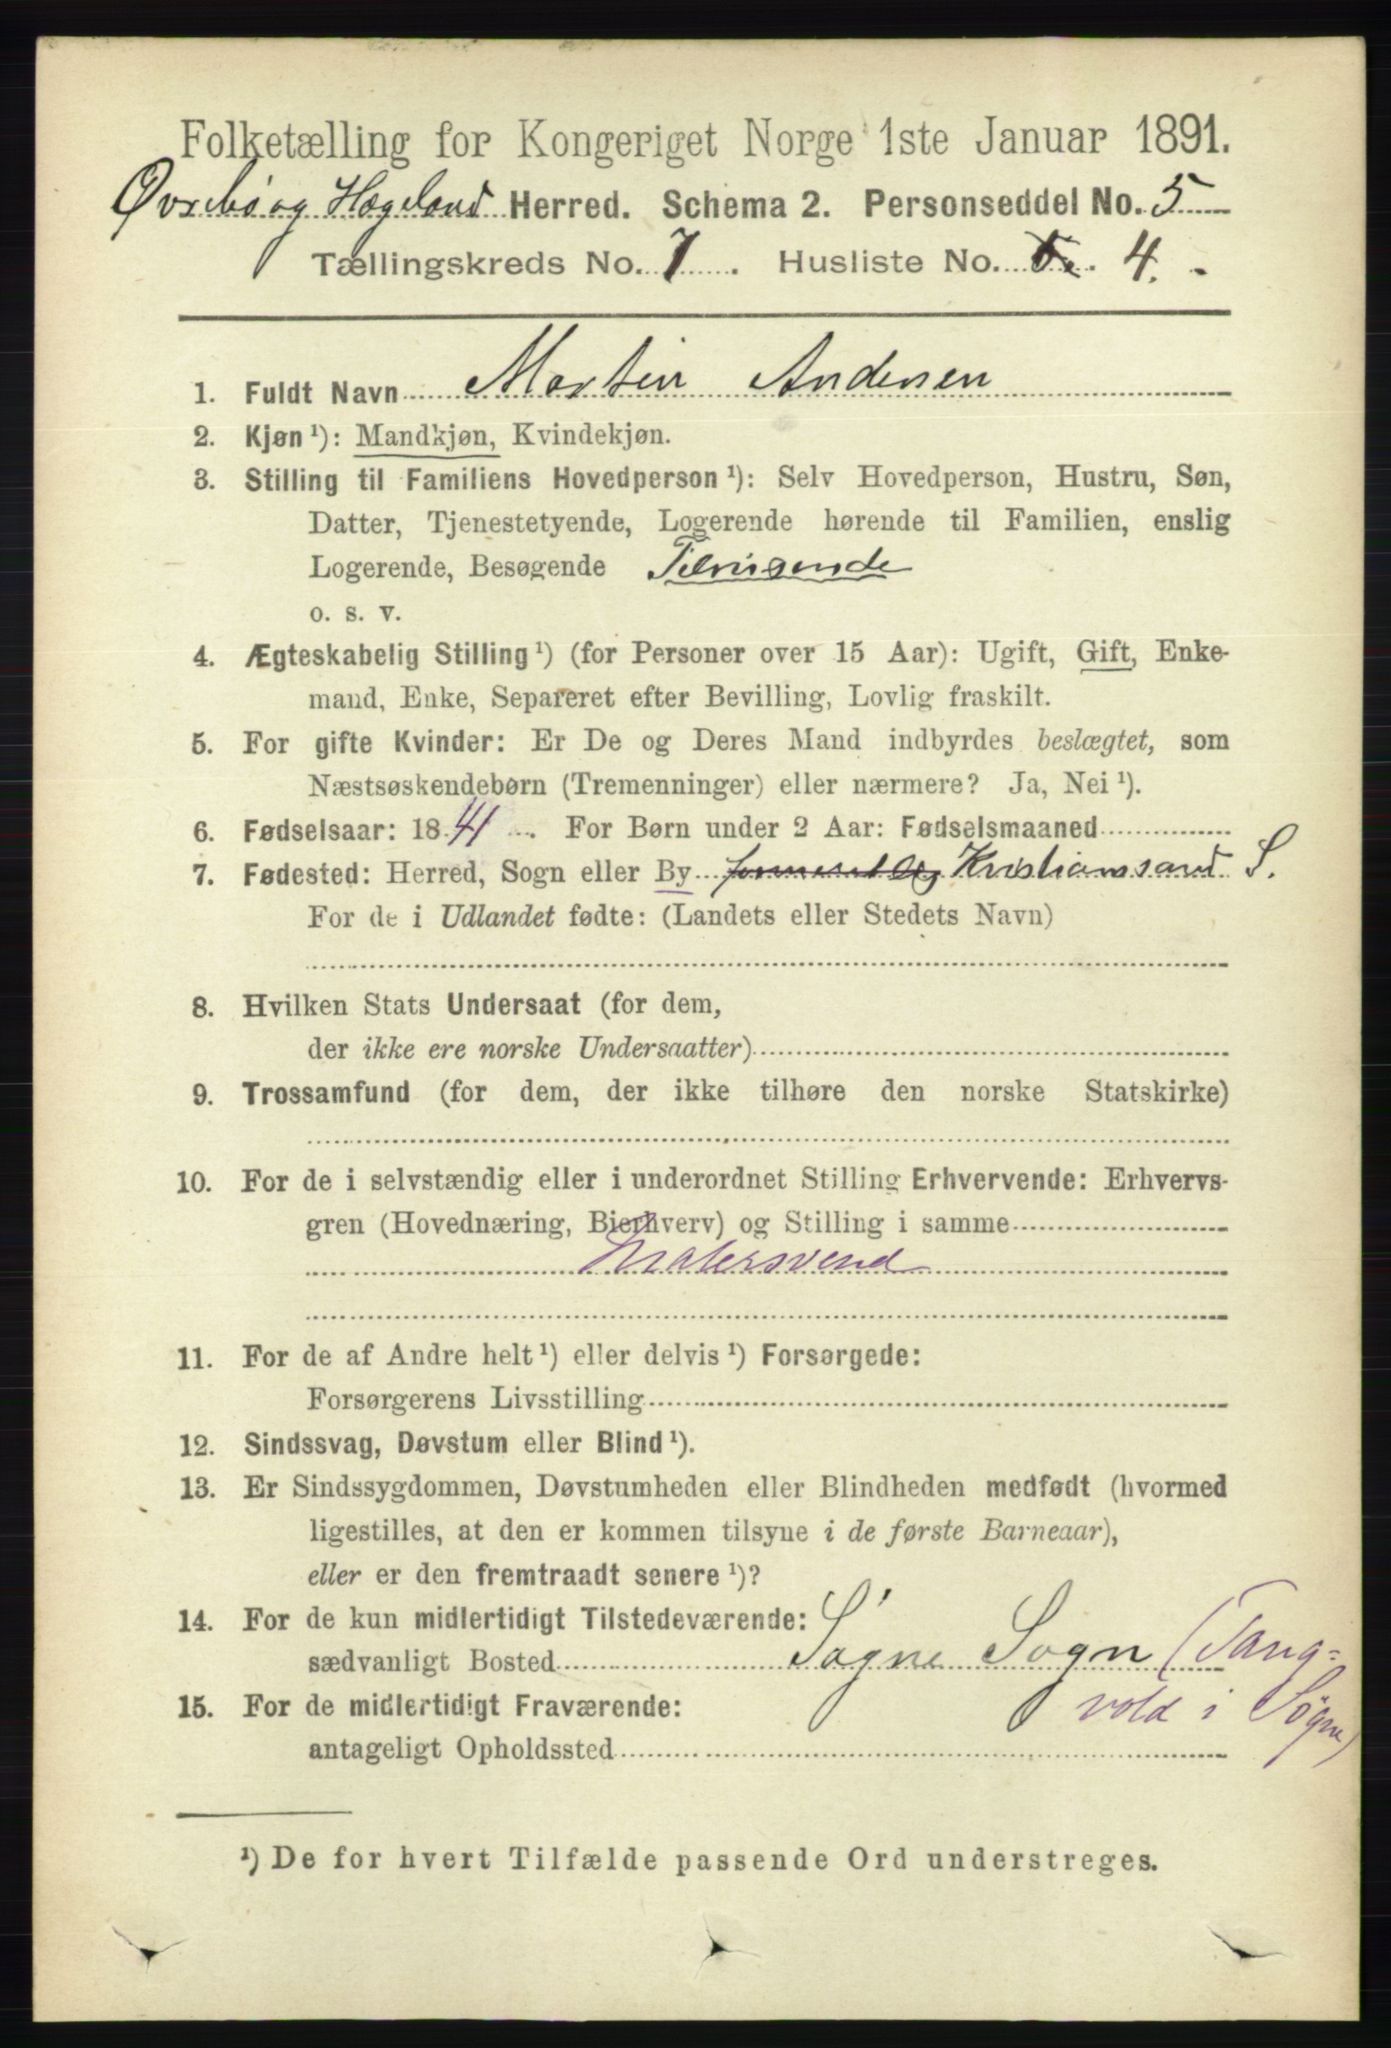 Folketælling for Kongeriget Norge 1ste Januar 1891.
Øvrebö og Hægeland Herred. Schema 2. Personseddel No. 5
Tællingskreds No. 7. Husliste No. 4.
1. Fuldt Navn Martin Andersen
2. Kjøn ¹): Mandkjøn, Kvindekjøn.
3. Stilling til Familiens Hovedperson ¹): Selv Hovedperson, Hustru, Søn,
Datter, Tjenestetyende, Logerende hørende til Familien, enslig
Logerende, Besøgende Tilreisende
o. s. v.
4. Ægteskabelig Stilling ¹) (for Personer over 15 Aar): Ugift, Gift, Enke-
mand, Enke, Separeret efter Bevilling, Lovlig fraskilt.
5. For gifte Kvinder: Er De og Deres Mand indbyrdes beslægtet, som
Næstsøskendebørn (Tremenninger) eller nærmere? Ja, Nei ¹).
6. Fødselsaar: 1841. For Børn under 2 Aar: Fødselsmaaned
7. Fødested: Herred, Sogn eller By Kristianssand S.
For de i Udlandet fødte: (Landets eller Stedets Navn)
8. Hvilken Stats Undersaat (for dem,
der ikke ere norske Undersaatter)
9. Trossamfund (for dem, der ikke tilhøre den norske Statskirke)
10. For de i selvstændig eller i underordnet Stilling Erhvervende: Erhvervs-
gren (Hovednæring, Bierhverv) og Stilling i samme
Malersvend
11. For de af Andre helt ¹) eller delvis ¹) Forsørgede:
Forsørgerens Livsstilling
12. Sindssvag, Døvstum eller Blind ¹).
13. Er Sindssygdommen, Døvstumheden eller Blindheden medfødt (hvormed
ligestilles, at den er kommen tilsyne i de første Barneaar),
eller er den fremtraadt senere ¹)?
14. For de kun midlertidigt Tilstedeværende:
sædvanligt Bosted Sögne Sogn (Tang-
15. For de midlertidigt Fraværende: vold i Sögne)
antageligt Opholdssted
¹) De for hvert Tilfælde passende Ord understreges.